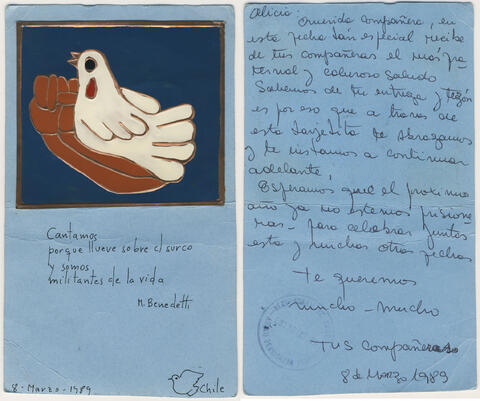 Cantamos
porque llueve sobre el surco
y somos
militantes de la vida
M. Benedetti
8 - Marzo - 1989
Chile
Alicia:
Querida compañera, en
esta fecha tan especial recibe
de tus compañeras el más fra
ternal y caluroso saludo
Sabemos de tu entrega y tezón
es por eso que a traves de
esta tarjetita te abrazamos
y te instamos a continuar
adelante,
Esperamos que el proximo
año ya no estemos prisione
ras- para celebrar juntas
esta y muchas otras fechas
Te queremos
mucho - mucho
Tus compañeras
8 de Marzo 1989